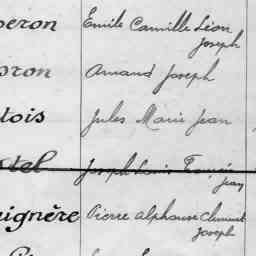 peron Emile Camille Léon
Joseph
oron Armand Joseph
tois Jules Marie Jean
tel Joseph Louis
Jean
aignère Pierre Alphonse Clément
Joseph